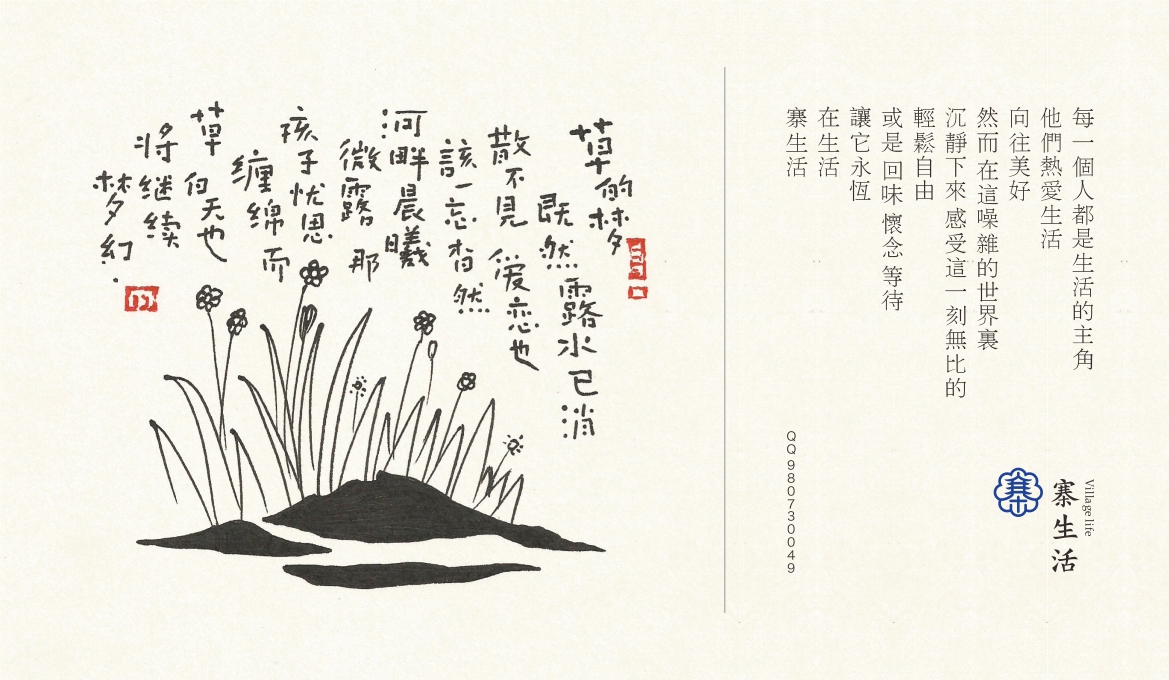 每一個人都是生活的主角
他們熱愛生活
向往美好
然而在這噪雜的世界裏
沉靜下來 感受這一刻無比的
輕鬆自由
或是 回味 懷念 等待
讓它永恆
在生活
寨生活
QQ980730049
Village life
寨生活
寨
草的梦
既然露水已消
散不見 爱恋也
該一忘杳然
河畔晨曦
微露 那
孩子忧思
缠绵而
草 天也
将继续
梦幻.